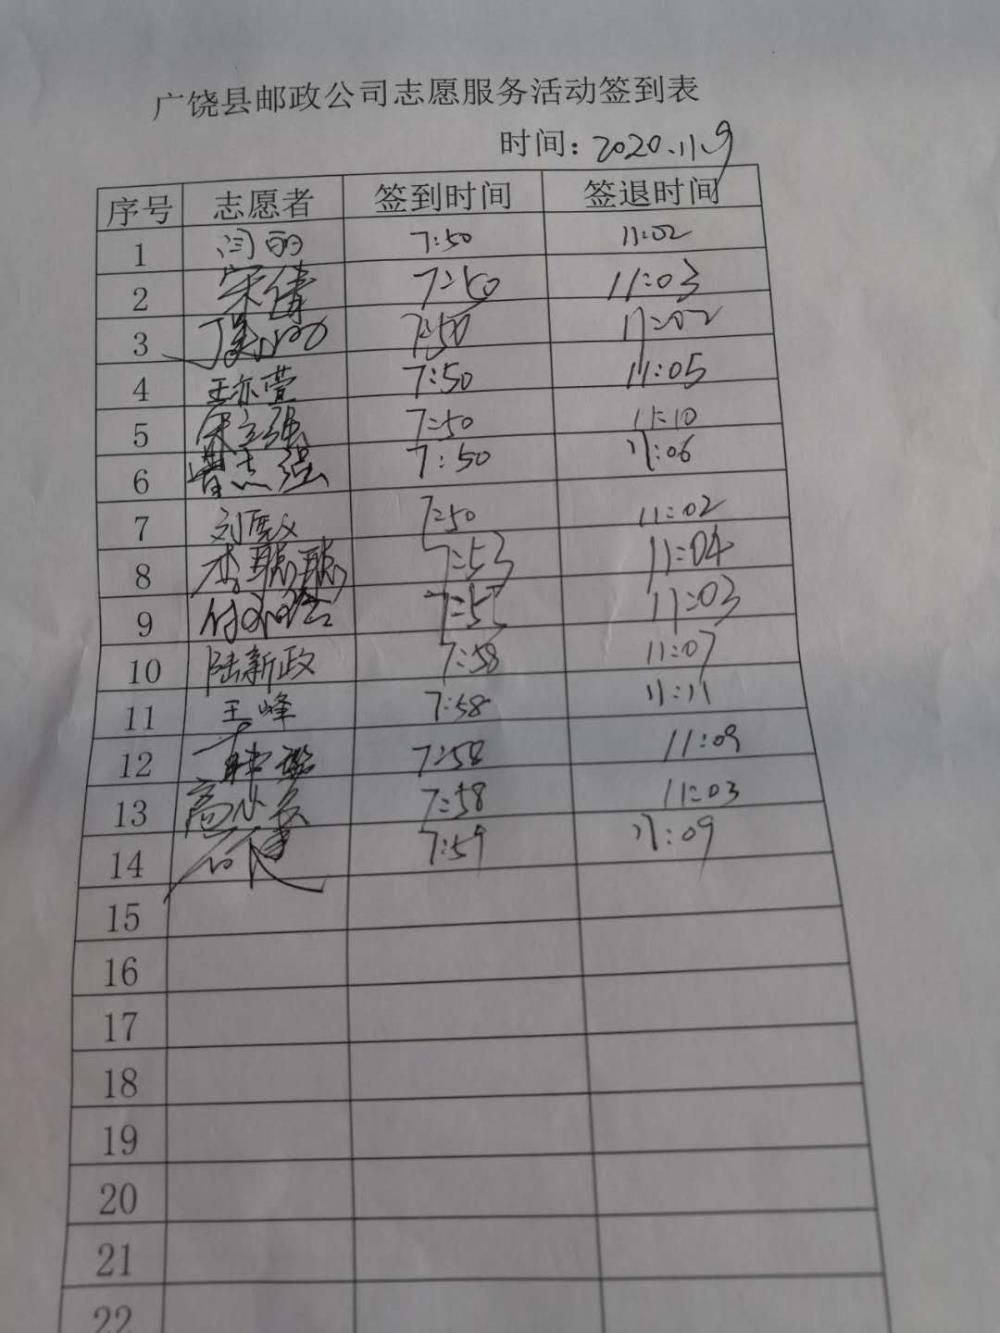 广饶县邮政公司志愿服务活动签到表
时间: 2020.11.9
序号 志愿者 签到时间 签退时间
1 闫丽 7:50 11:02
2 宋倩 7:50 11:03
3 7:50 11:02
4 王亦萱 7:50 11:05
5 宋立强 7:50 11:10
6 曹志强 7:50 11:06
7 7:50 11:02
8 李聪聪 7:53 11:04
9 11:03
10 陆新政 7:58 11:07
11 王峰 7:58 11:11
12 7:58 11:09
13 7:58 11:03
14 石健 7:59 11:09
15
16
17
18
19
20
21
22